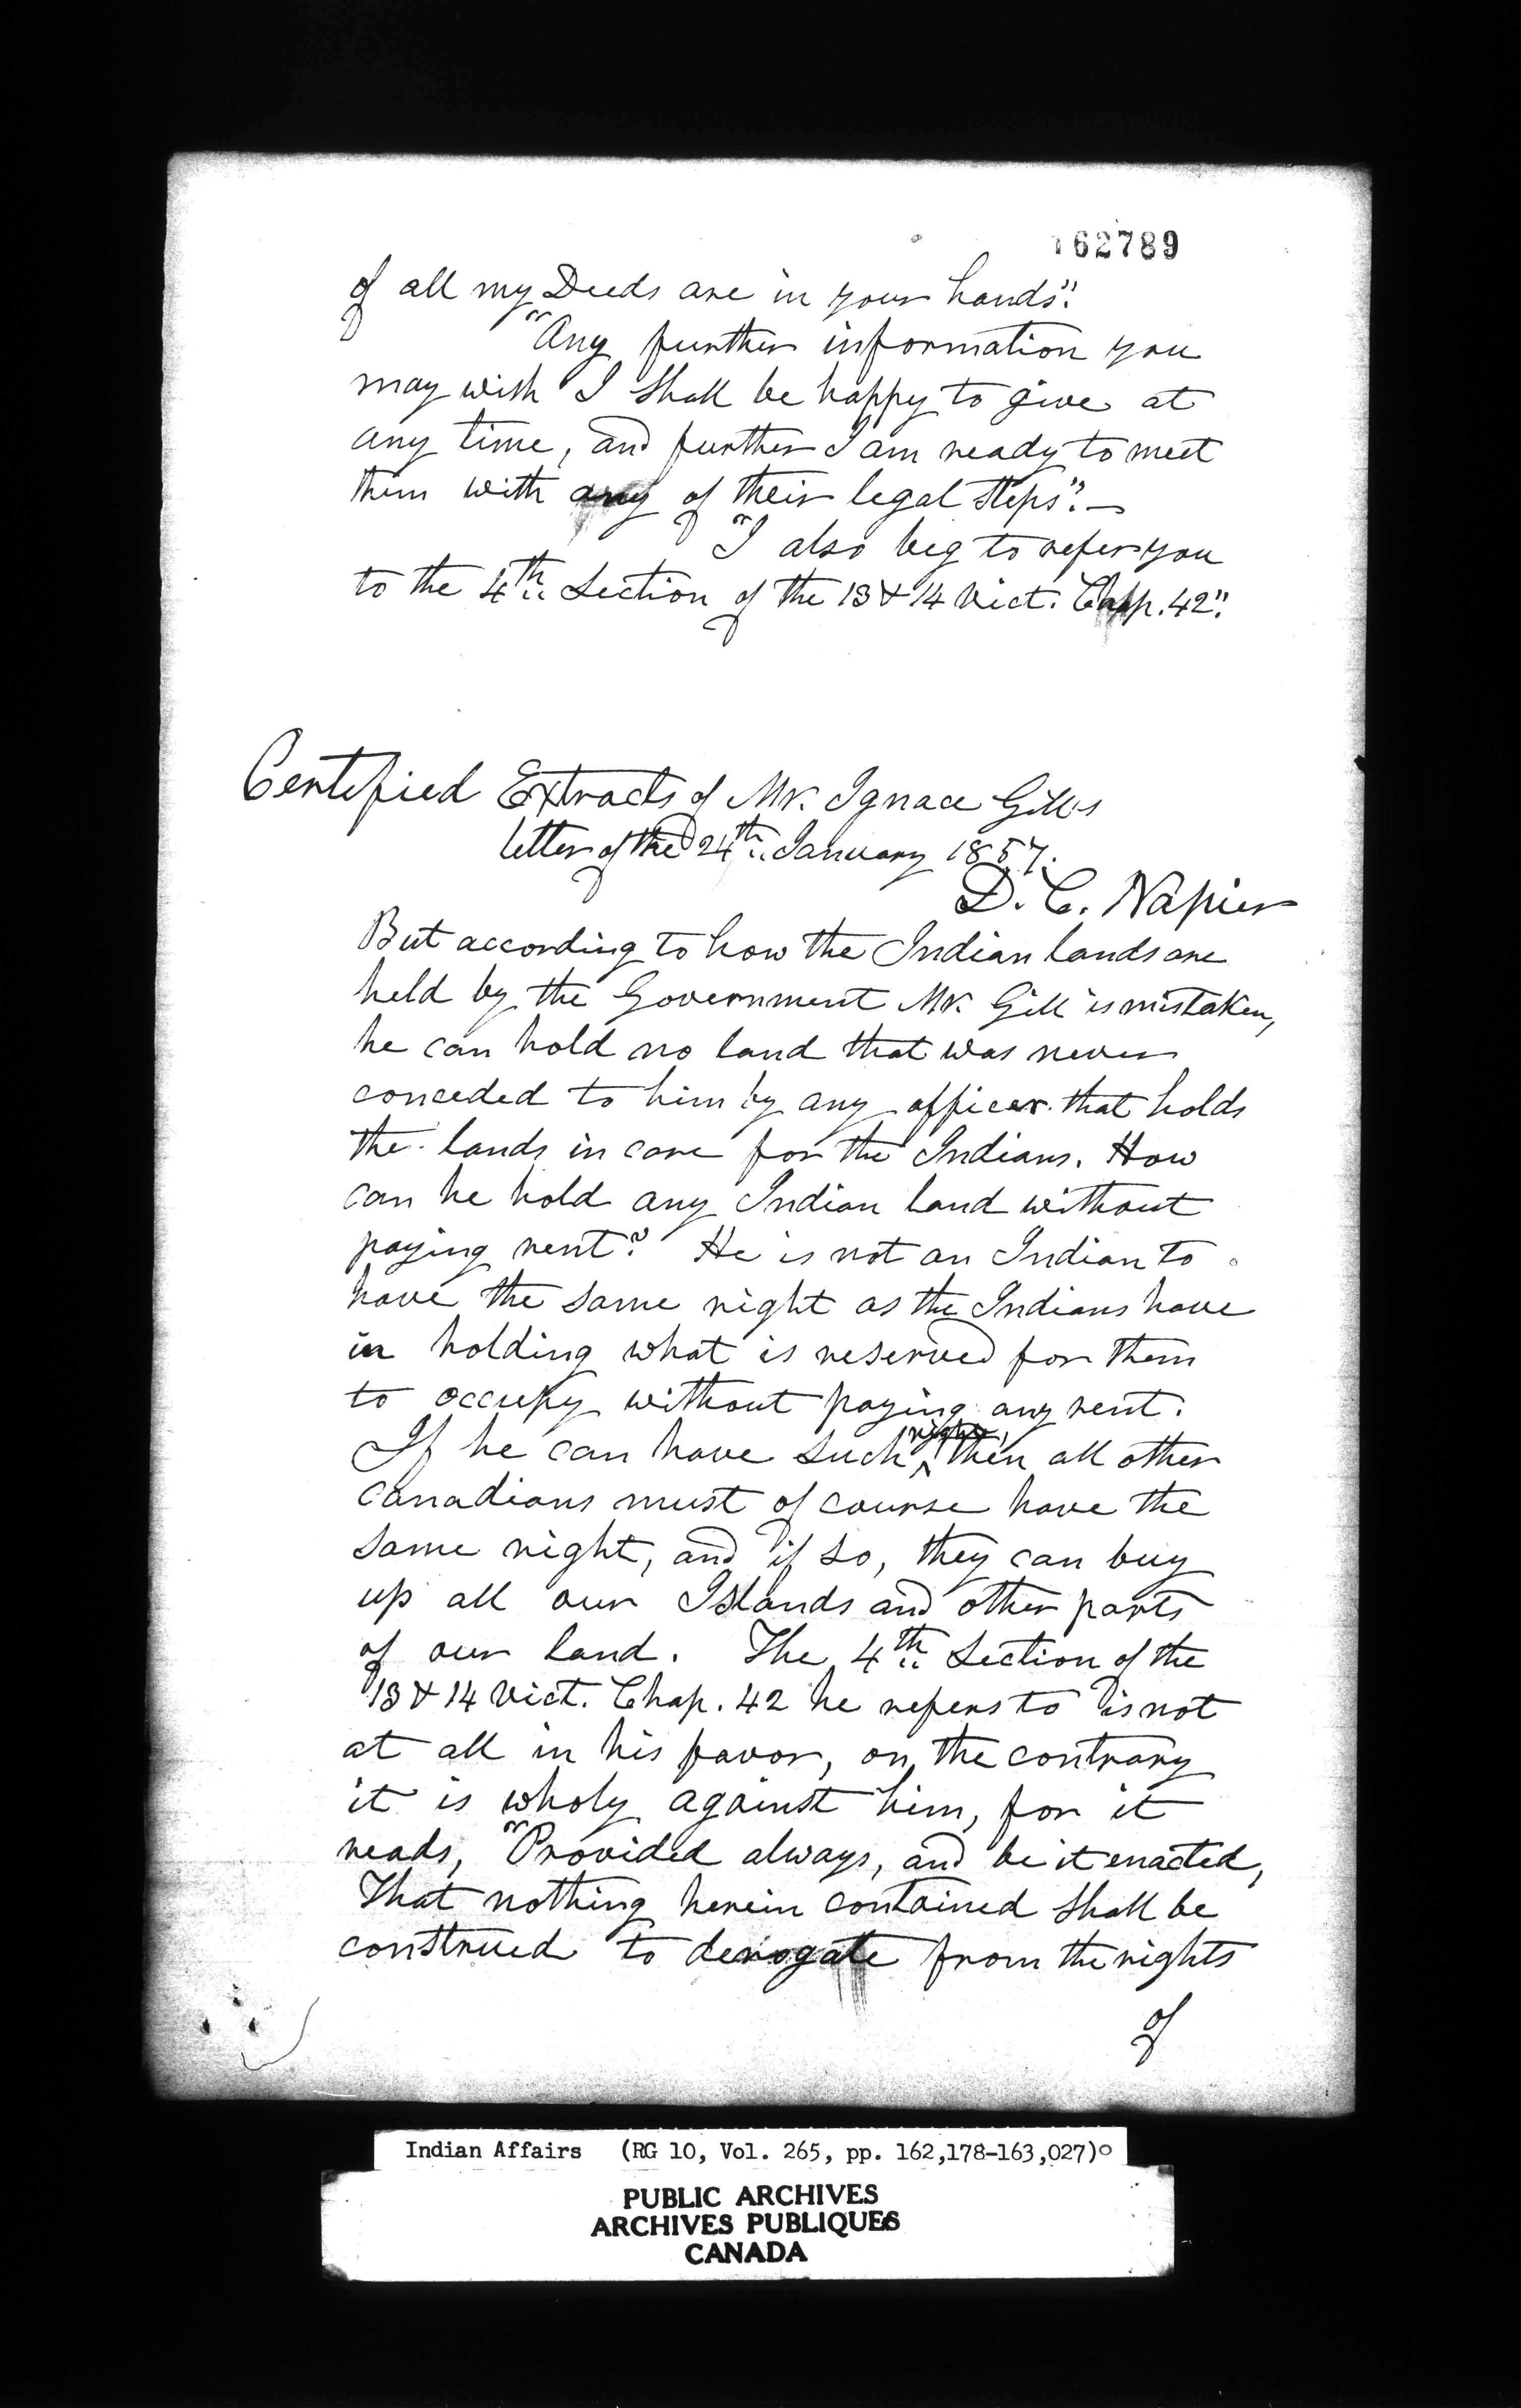 162789
of all my Deeds are in your hands".
"Any further information you
may wish I shall be happy to give at
any time, and further I am ready to meet
them with any of their legal steps". —
"I also beg to refer you
to the 4th Section of the 13 & 14 Vict. Chap. 42".
Certified Extracts of Mr. Ignace Gill's
letter of the 24th January 1857.
D. C. Napier
But according to how the Indian lands are
held by the Government Mr. Gill is mistaken,
he can hold no land that was never
conceded to him by any officer that holds
the lands in care for the Indians. How
can he hold any Indian land without
paying rent? He is not an Indian to
have the same right as the Indians have
in holding what is reserved for them
to occupy without paying any rent.
If he can have such right, then all other
Canadians must of course have the
same right, and if so, they can buy
up all our Islands and other parts
of our land. The 4th Section of the
13 & 14 Vict. Chap. 42 he refers to is not
at all in his favor, on the contrary
it is wholy against him, for it
reads, "Provided always, and be it enacted,
That nothing herein contained shall be
construed to derogate from the rights
of
Indian Affairs (RG 10, Vol. 265, pp. 162,178-163,027)
PUBLIC ARCHIVES
ARCHIVES PUBLIQUES
CANADA